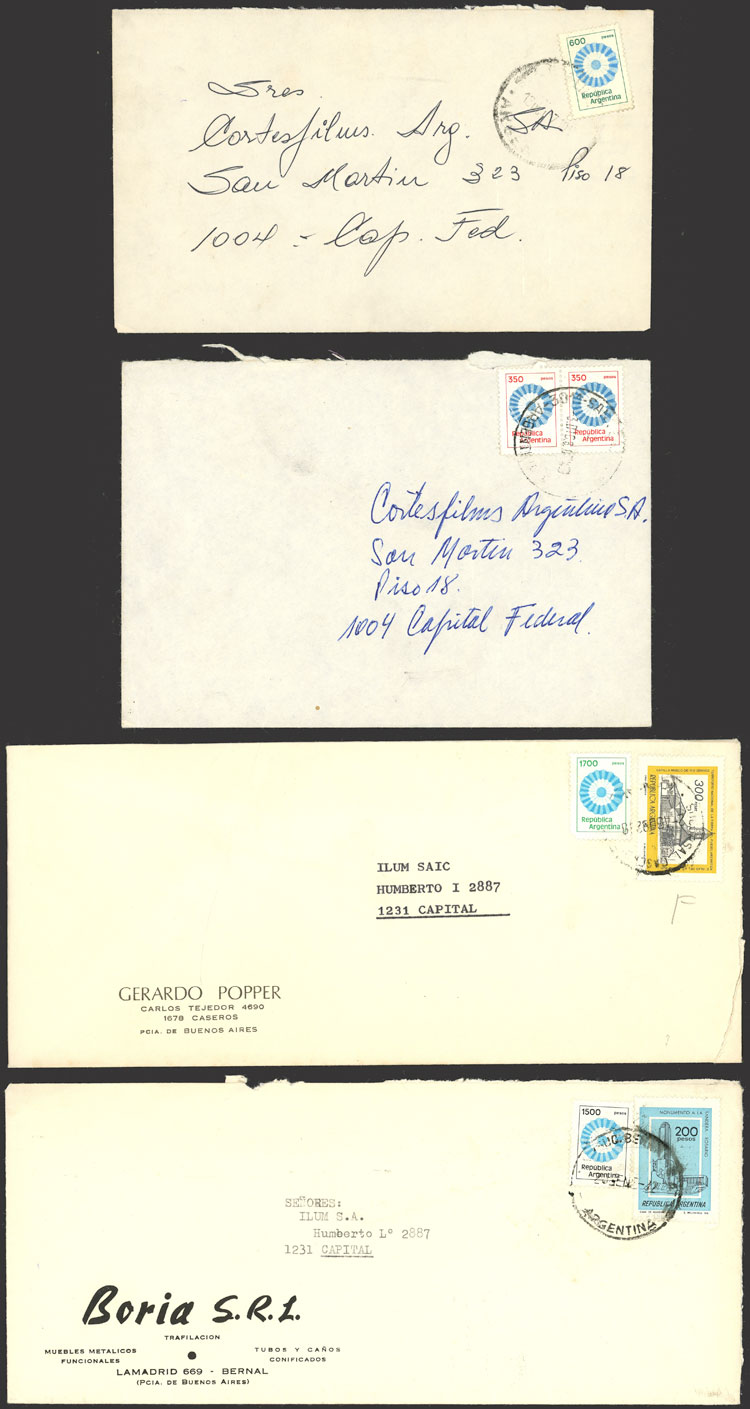 600 pesos
República
Argentina
Sres.
Cortesfilms. Arg. SA
San Martin 323 Piso 18
1004 - Cap. Fed.
350 pesos 350 pesos
República República
Argentina Argentina
Cortesfilms Argentina S.A.
San Martin 323
Piso 18.
1004 Capital Federal.
1700 pesos
República
Argentina
300
REPUBLICA ARGENTINA
ILUM SAIC
HUMBERTO I 2887
1231 CAPITAL
GERARDO POPPER
CARLOS TEJEDOR 4690
1678 CASEROS
PCIA. DE BUENOS AIRES
1500 pesos
República
Argentina
MONUMENTO A LA
BANDERA ROSARIO
200
pesos
REPUBLICA ARGENTINA
ARGENTINA
SEÑORES:
ILUM S.A.
Humberto Lº 2887
1231 CAPITAL
Boria S.R.L.
TRAFILACION
MUEBLES METALICOS TUBOS Y CAÑOS
FUNCIONALES CONIFICADOS
LAMADRID 669 - BERNAL
(PCIA. DE BUENOS AIRES)